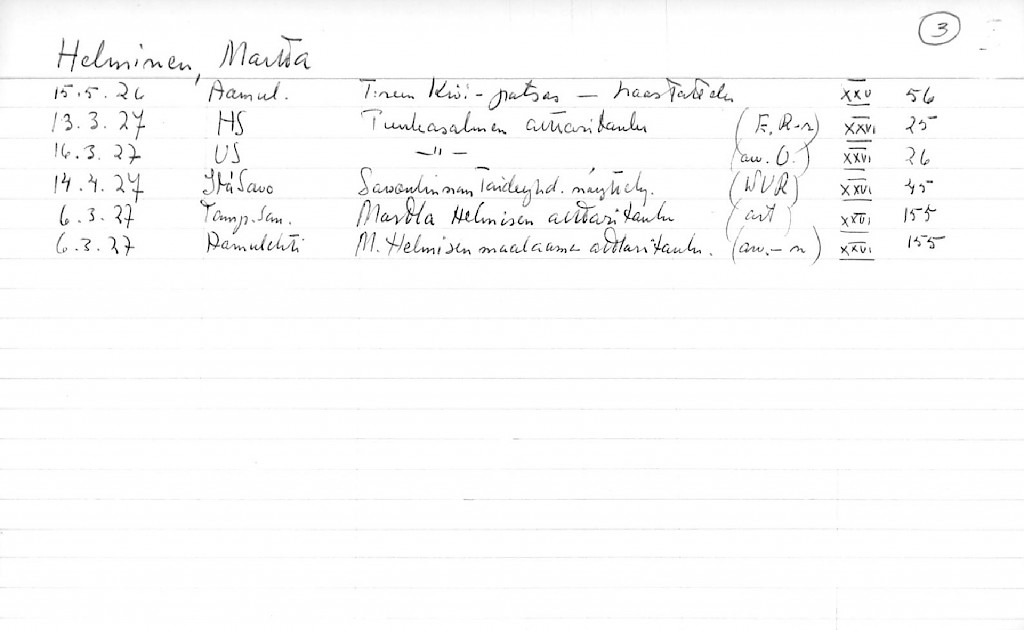 3
Helminen, Martta
15.5.26 Aamul. T:reen Kivi-patsas — haastattelu XXV 56
13.3.27 HS Punkasalmen alttaritaulu (E. R-r) XXVI 25
16.3.27 US —"— (aw. O.) XXVI 26
14.4.27 ItäSavo Savonlinnan Taideyhd. näyttely. (WVR) XXVI 45
6.3.27 Tamp.San. Martta Helmisen alttaritaulu (art) XXVI 155
6.3.27 Aamulehti M. Helmisen maalaama alttaritaulu. (aw.-n) XXVI 155